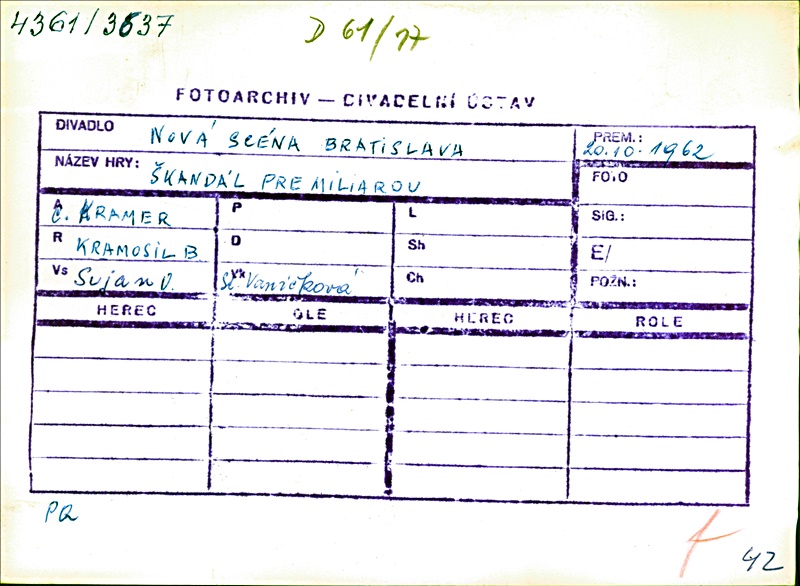 4361/3637
D 61/17
FOTOARCHIV — DIVADELNÍ ÚSTAV
DIVADLO NOVÁ SCÉNA BRATISLAVA
PREM.: 20.10.1962
NÁZEV HRY: ŠKANDÁL PRE MILIAROU
FOTO
A Č. KRAMER
P
L
SIG.:
R KRAMOSIL B
D
Sh
E/
Vs Sujan V.
Vk Sl. Vaničková
Ch
POZN.:
HEREC ROLE HEREC ROLE
PR
42